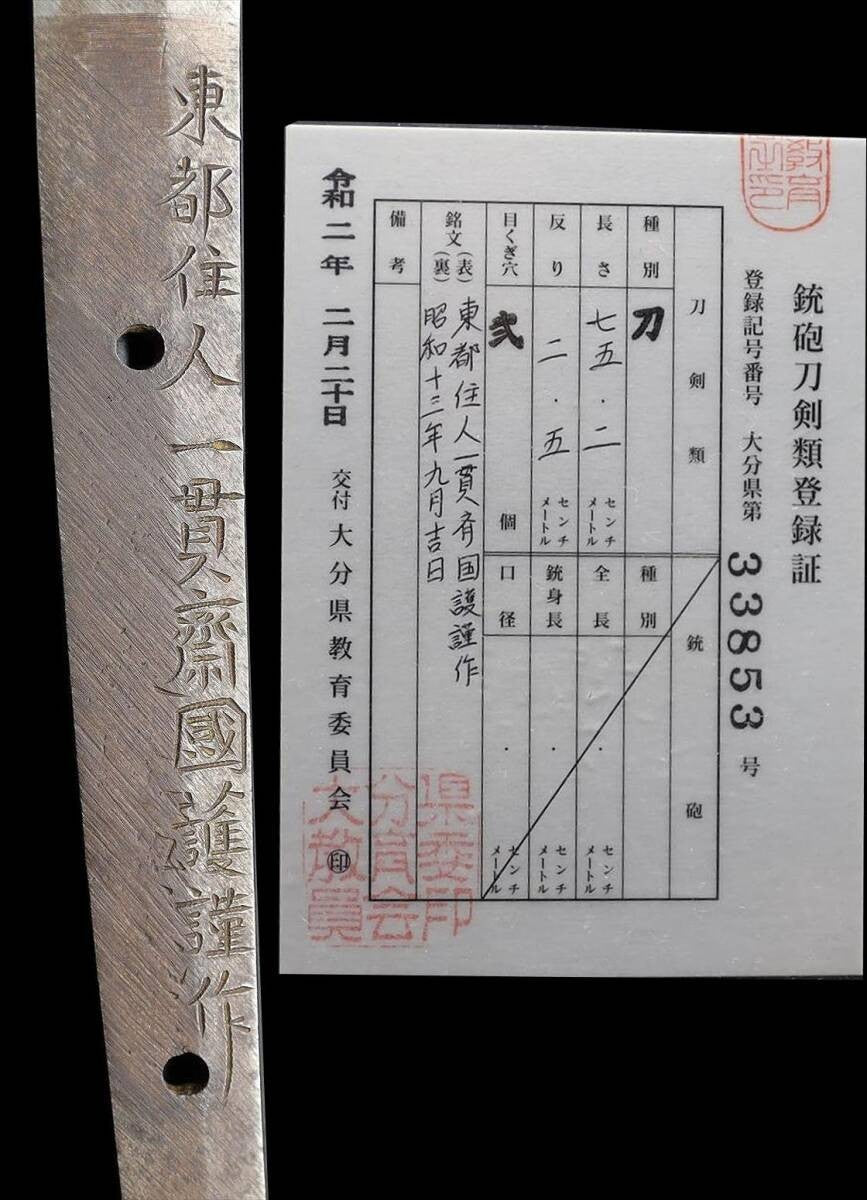 東都住人一貫齋國護謹作
銃砲刀剣類登録証
登録記号番号 大分県第 33853 号
刀剣類
種別 刀
長さ 七五.二 センチメートル
反り 二.五 センチメートル
目くぎ穴 弐 個
銘文(表) 東都住人一貫斉国護謹作
(裏) 昭和十三年九月吉日
備考
銃砲
種別
全長 . センチメートル
銃身長 . センチメートル
口径 . センチメートル
令和二年 二月二十日
交付 大分県教育委員会 ㊞
県委印
分育会
大教員